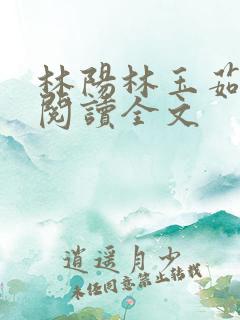 林陽林玉茹
閱讀全文
逍遥月少
未經同意禁止轉載